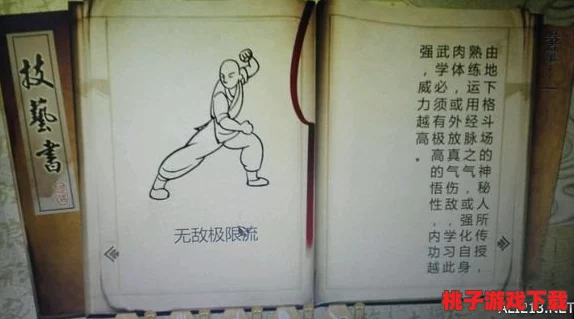 技藝書
无敌极限流
由地下格斗场的神秘人所传授，
熟练运用经脉之气，或强化自身
肉体，或外放真气伤敌，学习此
武学必须有极高的悟性，内功越
强，威力越高。
桃子游戏下载
ALI213.NET